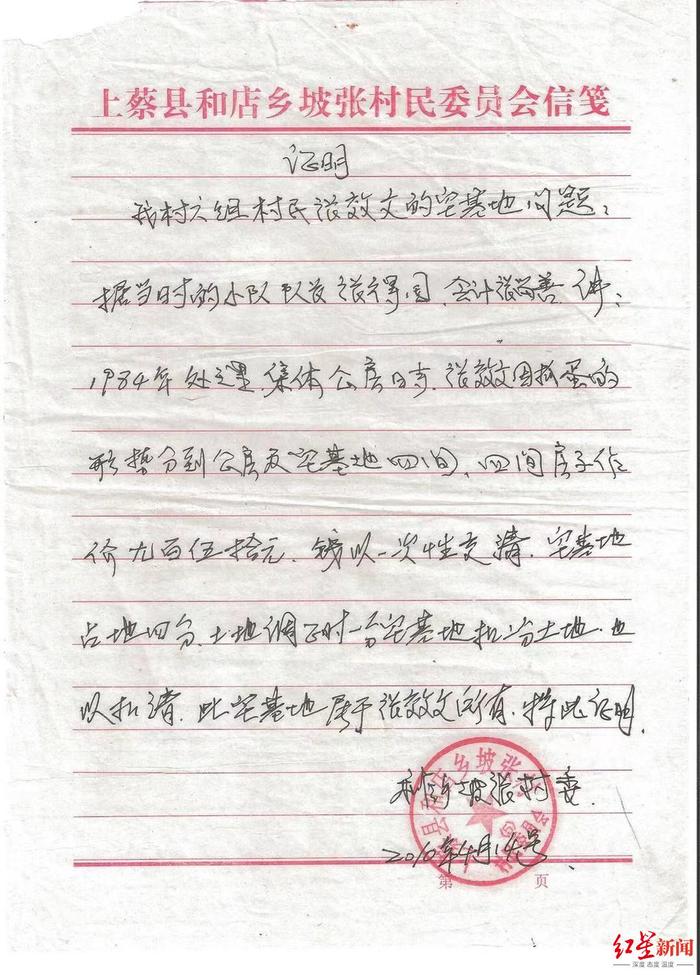 上蔡县和店乡坡张村民委员会信笺
证明
我村六组村民张效文的宅基地问题:
据当时的小队队长张得同、会计张尚善讲:
1984年处理集体公房时,张效文因抓蛋的
形势分到公房及宅基地四间,四间房子作
价九百伍拾元.钱以一次性交清.宅基地
占地四分.土地调正时一分宅基地扣分土地.也
以扣清.此宅基地属于张效文所有.特此证明.
和店乡坡张村委.
2010年4月14号.
第 页
红星新闻
深度 态度 温度